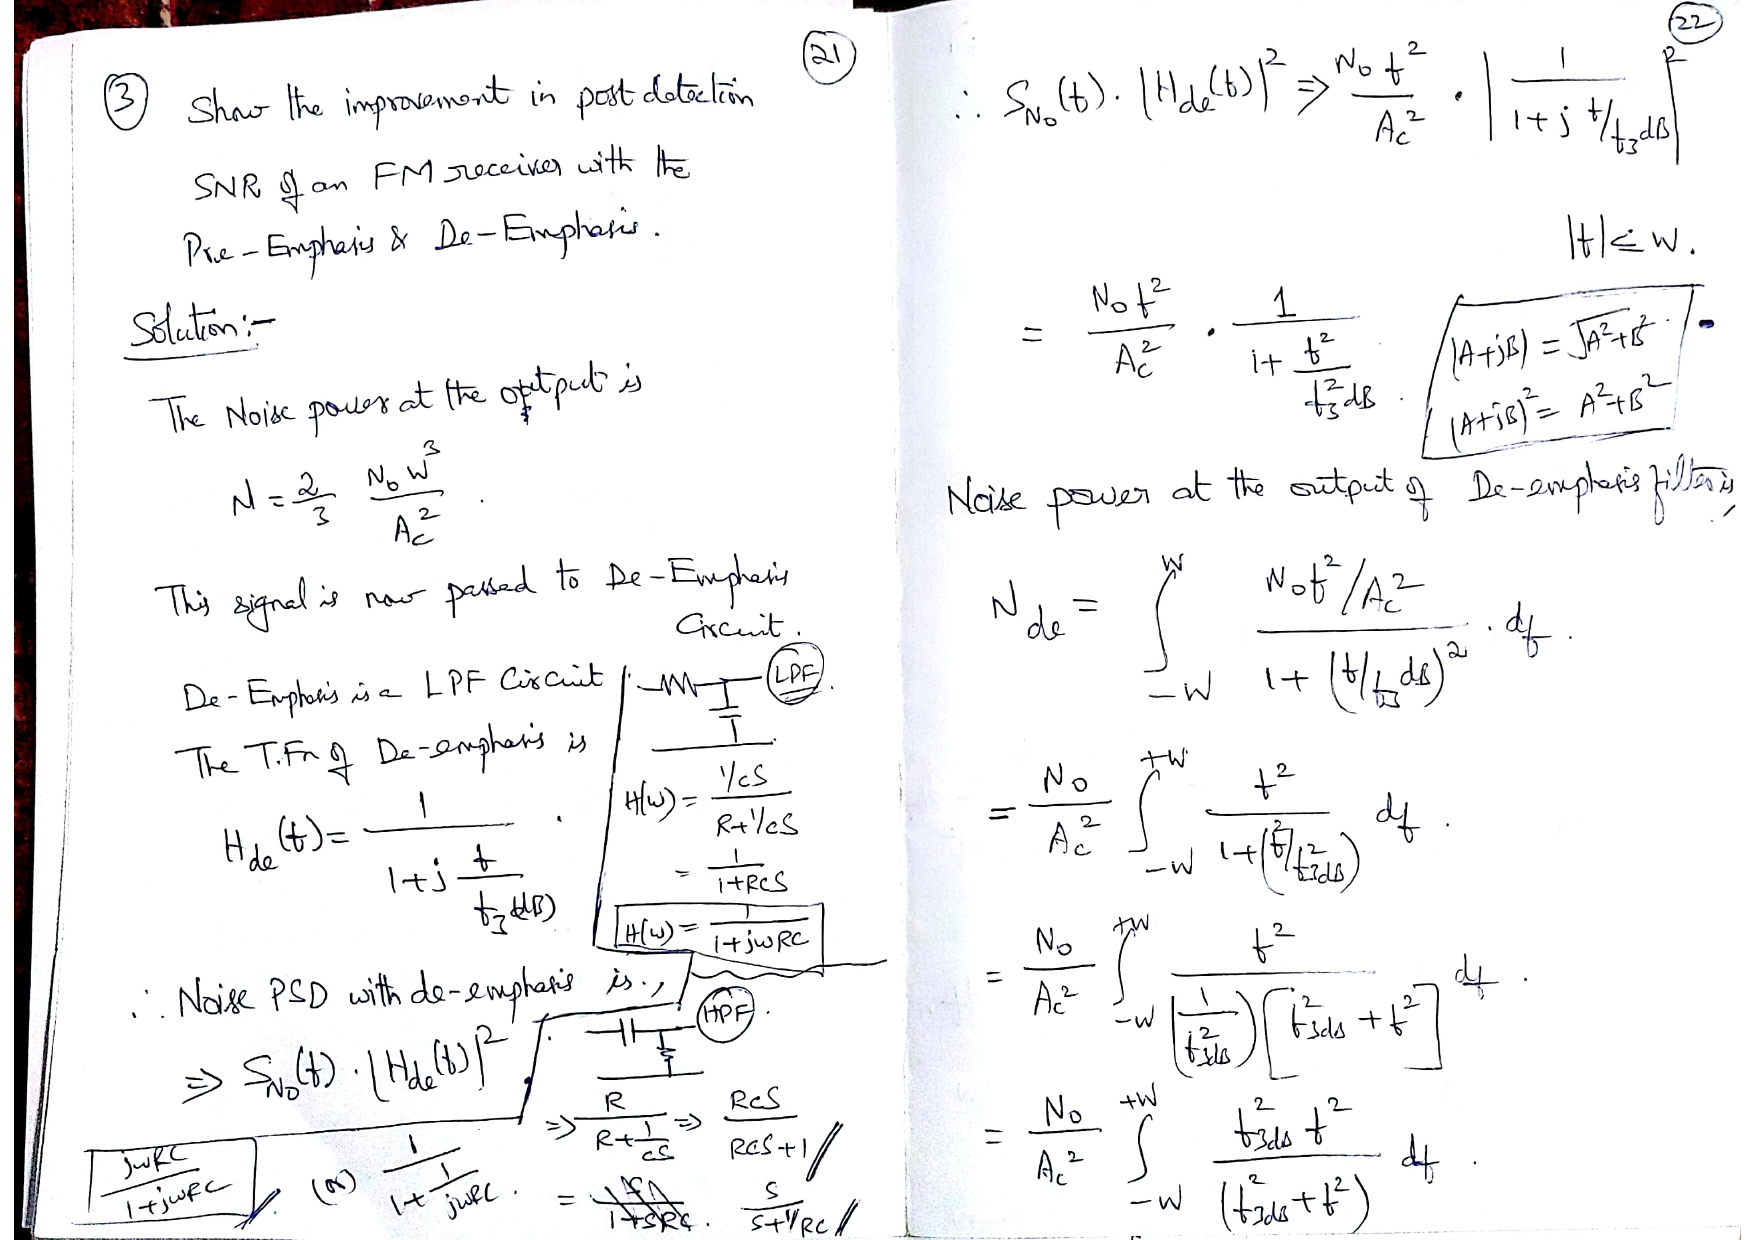 (21)
(3) Show the improvement in post detection
SNR of an FM receiver with the
Pre-Emphasis & De-Emphasis.
Solution:-
The Noise power at the output is
N = 2/3 N₀W³/A_c² .
This signal is now passed to De-Emphasis
Circuit.
De-Emphasis is a LPF Circuit
The T.Fn of De-emphasis is
H_de(f) = 1/(1+j f/f₃dB) .
LPF
H(ω) = (1/CS)/(R+1/CS)
= 1/(1+RCS)
H(ω) = 1/(1+jωRC)
∴ Noise PSD with de-emphasis is.,
⇒ S_N₀(f) . |H_de(f)|²
HPF
⇒ R/(R+1/CS) ⇒ RCS/(RCS+1)
= S/(S+1/RC)
jωRC/(1+jωRC) (or) 1/(1+1/jωRC) .
(22)
∴ S_N₀(f) . |H_de(f)|² ⇒ N₀f²/A_c² . |1/(1+j f/f₃dB)|²
|f| ≤ W.
= N₀f²/A_c² . 1/(1+f²/f₃²dB) .
|A+jB| = √A²+B² .
|A+jB|² = A²+B²
Noise power at the output of De-emphasis filter is,
N_de = ∫_-W^W (N₀f²/A_c²)/(1+(f/f₃dB)²) . df .
= N₀/A_c² ∫_-W^+W f²/(1+(f²/f²₃dB)) df .
= N₀/A_c² ∫_-W^+W f²/((1/f²₃dB)[f²₃dB + f²]) df .
= N₀/A_c² ∫_-W^+W f²₃dB f²/(f²₃dB + f²) df .